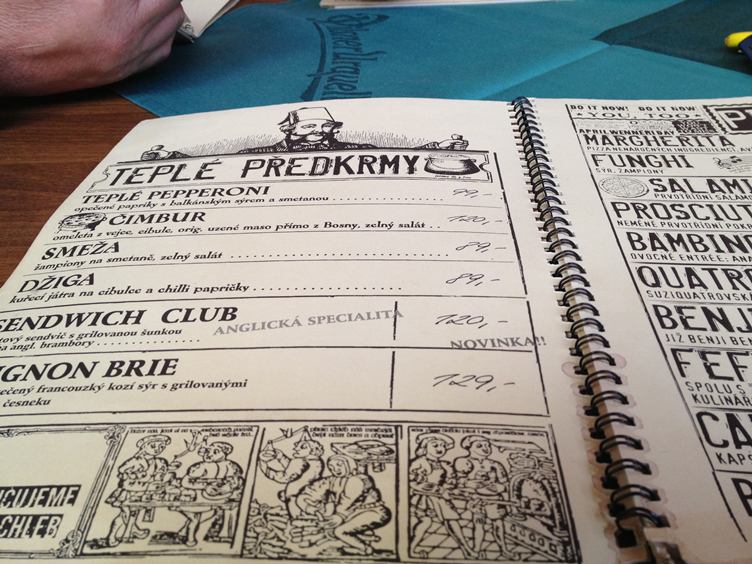 Pilsner Urquell
TEPLÉ PŘEDKRMY
TEPLÉ PEPPERONI 99,-
opečené papriky z balkánským sýrem a smetanou
ČIMBUR 120,-
omeleta z vejce, cibule, orig. uzené maso přímo z Bosny, zelný salát
SMEŽA 89,-
žampiony na smetaně, zelný salát
DŽIGA 89,-
kuřecí játra na cibulce a chilli papričky
SENDWICH CLUB 120,-
tový sendvič s grilovanou šunkou ANGLICKÁ SPECIALITA
a angl. brambory NOVINKA!!
IGNON BRIE 129,-
ečený francouzký kozí sýr s grilovanými
česneku
CUJEME
CHLEB
DO IT NOW! DO IT NOW!
YOU TOO
APRIL WENNERIDAY
MARGHE
PIZZA Z NÁRODNÝCH INGREDIENCÍ, AV
FUNGHI
SÝR, ŽAMPIONY
SALAMI
PRVOTŘÍDNÍ SALÁM
PROSCIUT
NEMÉNĚ PRVOTŘÍDNÍ
BAMBINO
OVOCNÉ ENTRÉE: ANA
QUATRO
SUZIQUATROVSK
BENJ
JIŽ BENJI BEN
FEF
SPOLU S
KULINÁŘ
CA
KAPS